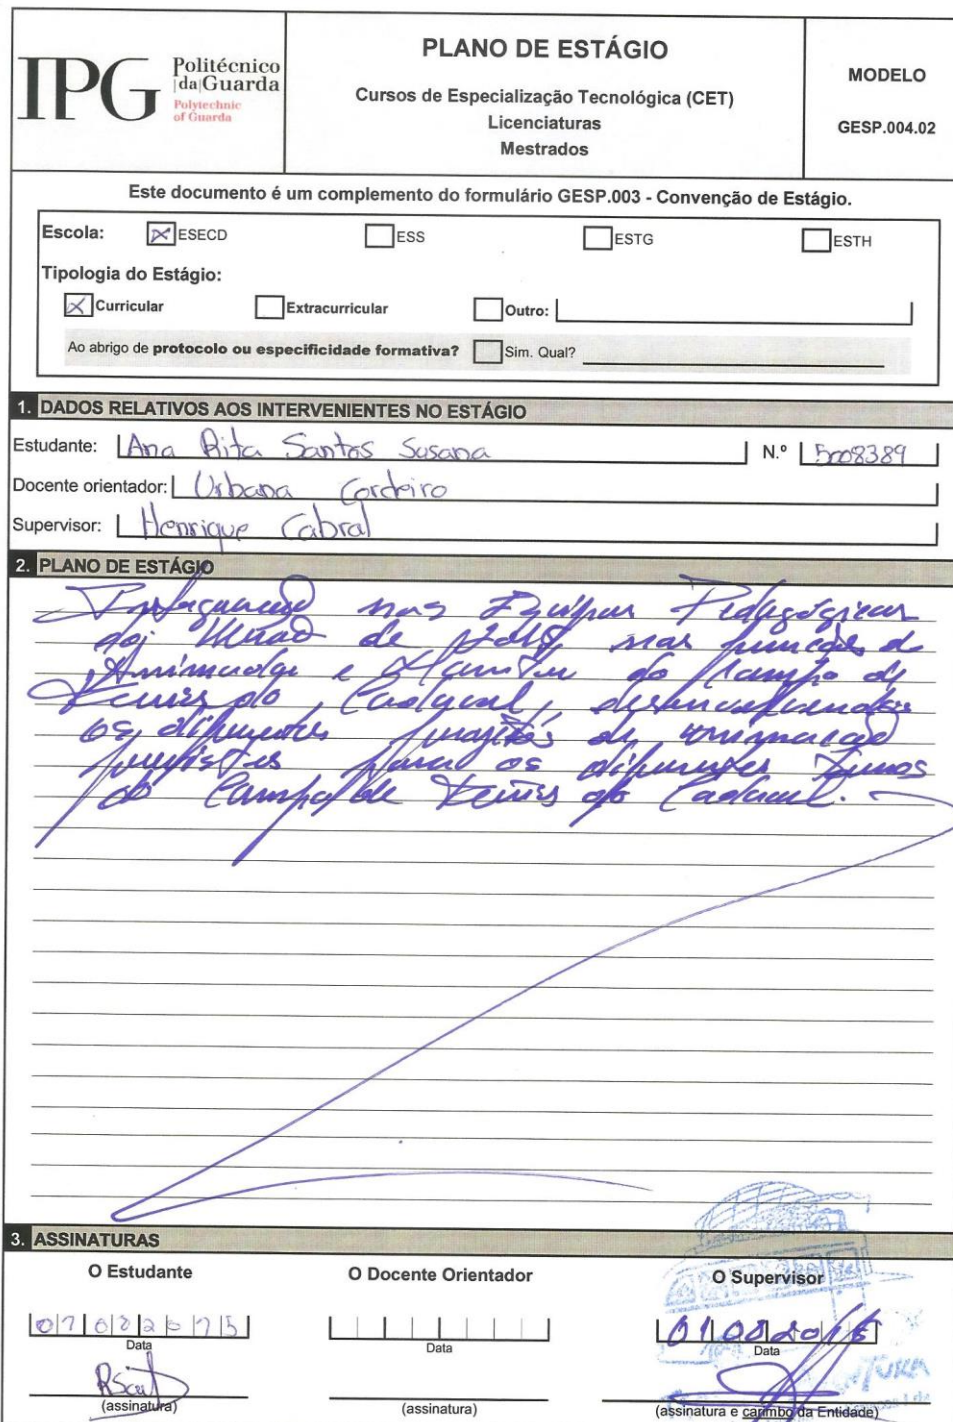 IPG Politécnico
|da|Guarda
Polytechnic
of Guarda
PLANO DE ESTÁGIO
Cursos de Especialização Tecnológica (CET)
Licenciaturas
Mestrados
MODELO
GESP.004.02
Este documento é um complemento do formulário GESP.003 - Convenção de Estágio.
Escola: ESECD ESS ESTG ESTH
Tipologia do Estágio:
Curricular Extracurricular Outro:
Ao abrigo de protocolo ou especificidade formativa? Sim. Qual?
1. DADOS RELATIVOS AOS INTERVENIENTES NO ESTÁGIO
Estudante: Ana Rita Santos Susana N.º 5008389
Docente orientador: Urbana Cordeiro
Supervisor: Henrique Cabral
2. PLANO DE ESTÁGIO
nas Equipas Pedagógicas
de nas funções de
e do Campo de
Férias do Cadaval,
os diferentes de animação
para os diferentes Turnos
do Campo de Férias do Cadaval.
3. ASSINATURAS
O Estudante O Docente Orientador O Supervisor
01082015
Data Data Data
(assinatura) (assinatura) (assinatura e carimbo da Entidade)